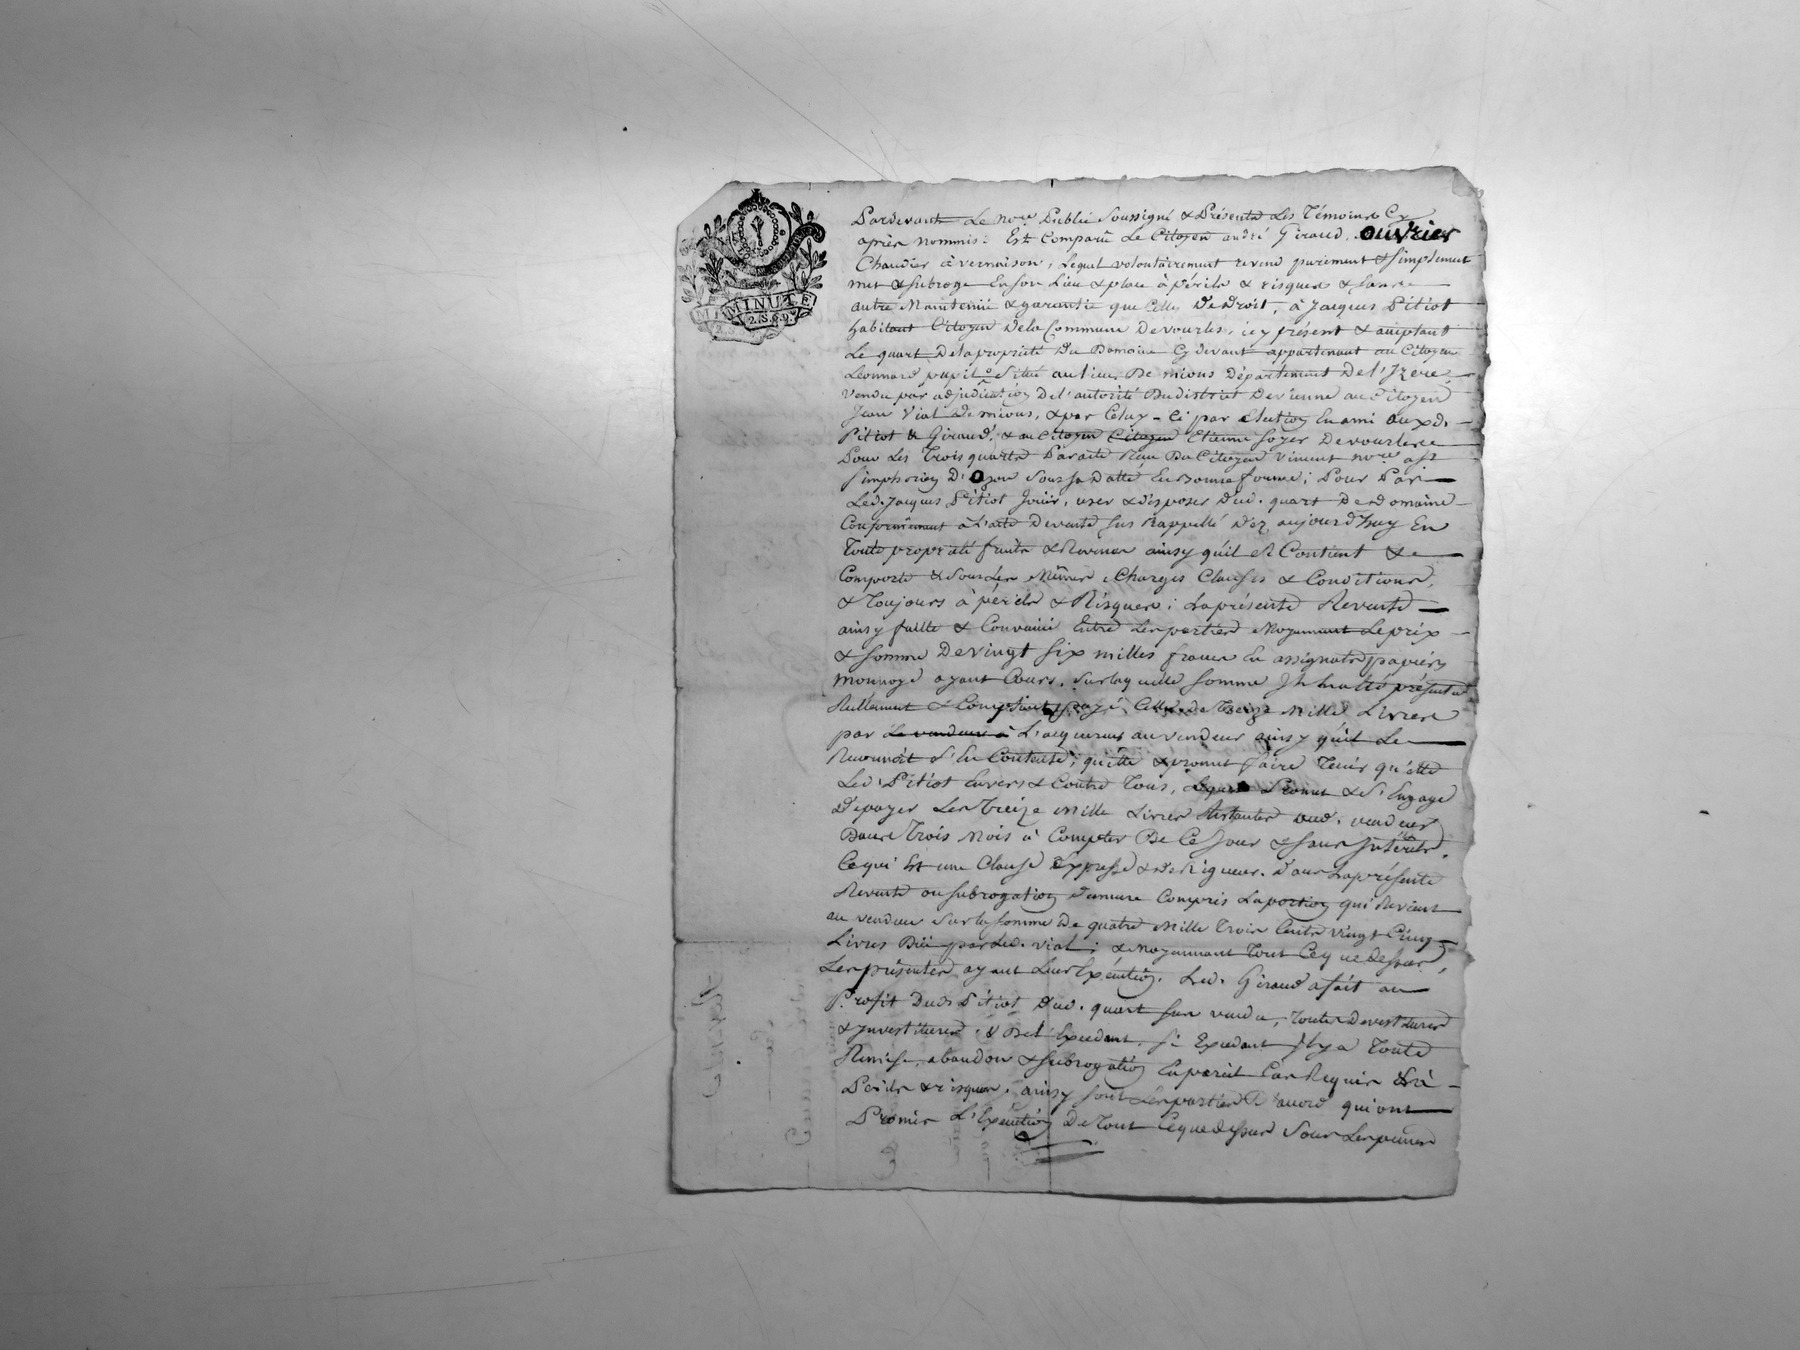 MINUTE
2.S.6.9
Pardevant Le no.re Public Soussigné & Présents Les Témoins Cy
après nommés: Est Comparu Le Citoyen andré Giraud, ouvrier
Chandier à vernaison, Lequel volontairement revend purement & simplement
met & subroge En son Lieu & place à périls & risques & sans
autre Maintenüe & garantie que Celle De droit, à Jacques Pitiot
habitant Citoyen De la Commune De vourles, icy présent & aceptant
Le quart De la propriété Du Domaine Cy devant appartenant au Citoyen
Léonnard Situé au lieu De mions Département De L'Izere,
Vendu par adjudication De l'autorité Du district De vienne au Citoyen
Jean Vial de mions, & par Celuy-ci par Election En ami auxd.
Pitiot & Giraud, & au Citoyen Citoyen Etienne De vourles
Pour Les Trois quarts Par acte Reçu Du Citoyen Vincent no.re a St
simphorien D'Ozon Sous sa Datte En Bonne forme; Pour Par
Led. Jacques Pitiot Jouir, user & disposer Dud. quart De domaine
Conformément à L'acte De vente sus Rappellé Dez aujourd'huy En
Toute propriété fruits & Revenus ainsy qu'il se Contient & se
Comporte & Sous Les Mêmes Charges Clauses & Conditions,
& Toujours à périls & Risques; La présente Revente
ainsy faitte & Convenüe Entre Les parties Moyennant Le prix
& somme De vingt six milles francs En assignats papiers
monnoye ayant Cours, Sur laquelle somme Il a été présentement
Réellement & Comptant payé Celle de Treize Mille Livres
par Le vendeur à L'acquereur au vendeur ainsy qu'il Le
Reconnoit S'En Contente, quitte & promet faire Tenir quitte
Led. Pitiot Envers & Contre Tous, Lequel Promet & S'Engage
De payer Les Treize Mille Livres Restantes aud. vendeur
Dans Trois Mois à Compter De Ce Jour & sans Intérêts,
Ce qui Est une Clause Expresse & De Rigueur. Dans La présente
Revente ou subrogation Demeure Compris La portion qui Revient
au vendeur Sur la somme De quatre Mille Trois Cents vingt Cinq
Livres Düe par Led. vial; & Moyennant Tout Ce que Dessus,
Les présentes ayant Leur Exécution, Led. Giraud a fait au
Profit Dud. Pitiot Dud. quart sus vendu, Toutes Devestitures
& Investitures, & De L'Excedant, si Excedant Il y a Toute
Remise, abandon & subrogation En pareil Cas Requis & à
Périls & risques. ainsy sont Les parties D'acord qui ont
Promis L'Exécution De Tout Ce que dessus Sous Les peines